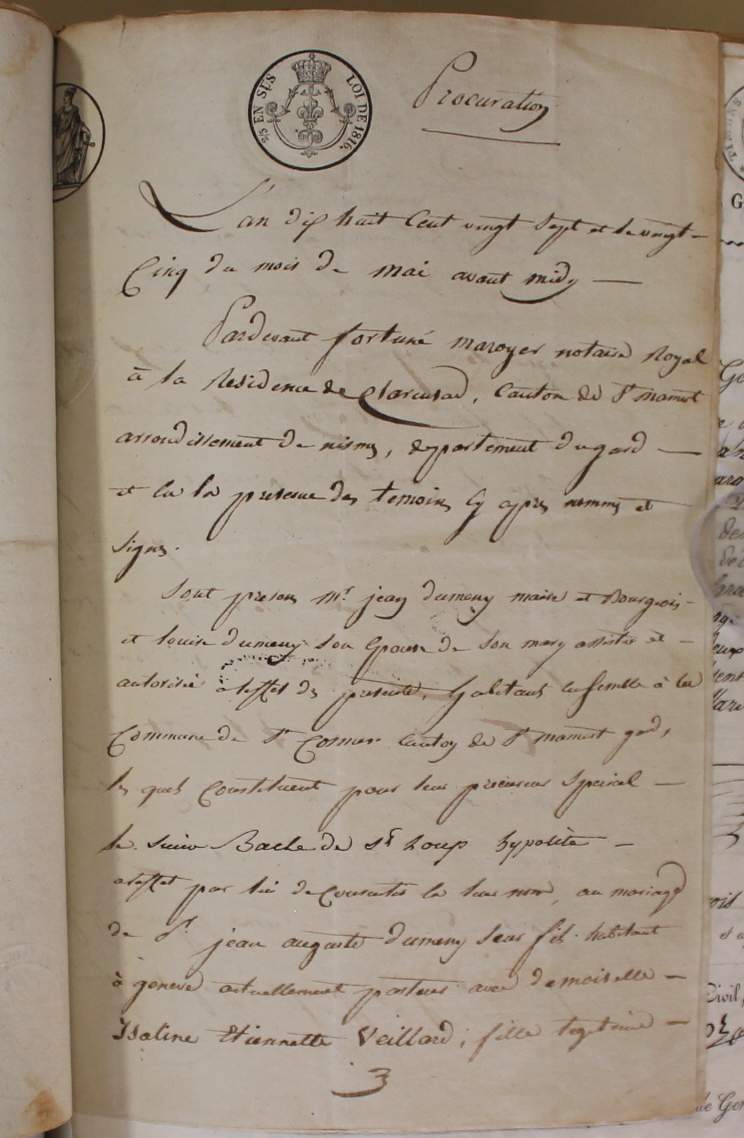 2/5 EN SUS LOI DE 1816.
Procuration
L'an dix huit cent vingt sept et le vingt
Cinq du mois de mai avant midy
Pardevant fortuné maroyer notaire Royal
à la Residence de Clarensac, Canton de St mamert
arrondissement de nismes, departement du gard
et en la presence des temoins cy apres nommés et
signés.
Sont presens mr. jean dumeny maire et Bourgeois
et louise dumeny son epouse de son mary assistée et
autorisée à leffet des presentes, habitans ensemble à la
Commune de St Cosmes canton de St mamert gard,
les quels Constituent pour leur procureur special
le sieur Bacle de St Loup hypolite
a leffet par lui de Consentir en leur nom, au mariage
de Sr. jean auguste dumeny leur fils habitant
à geneve actuellement avec demoiselle
Isaline Etiennette Veillard, fille legitime
3